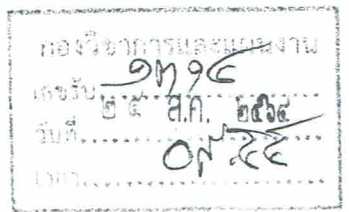 กองวิชาการและแผนงาน
เลขรับ ๑๓๑๔
วันที่ ๒๕ ส.ค. ๒๕๖๔
เวลา ๐๙.๕๕